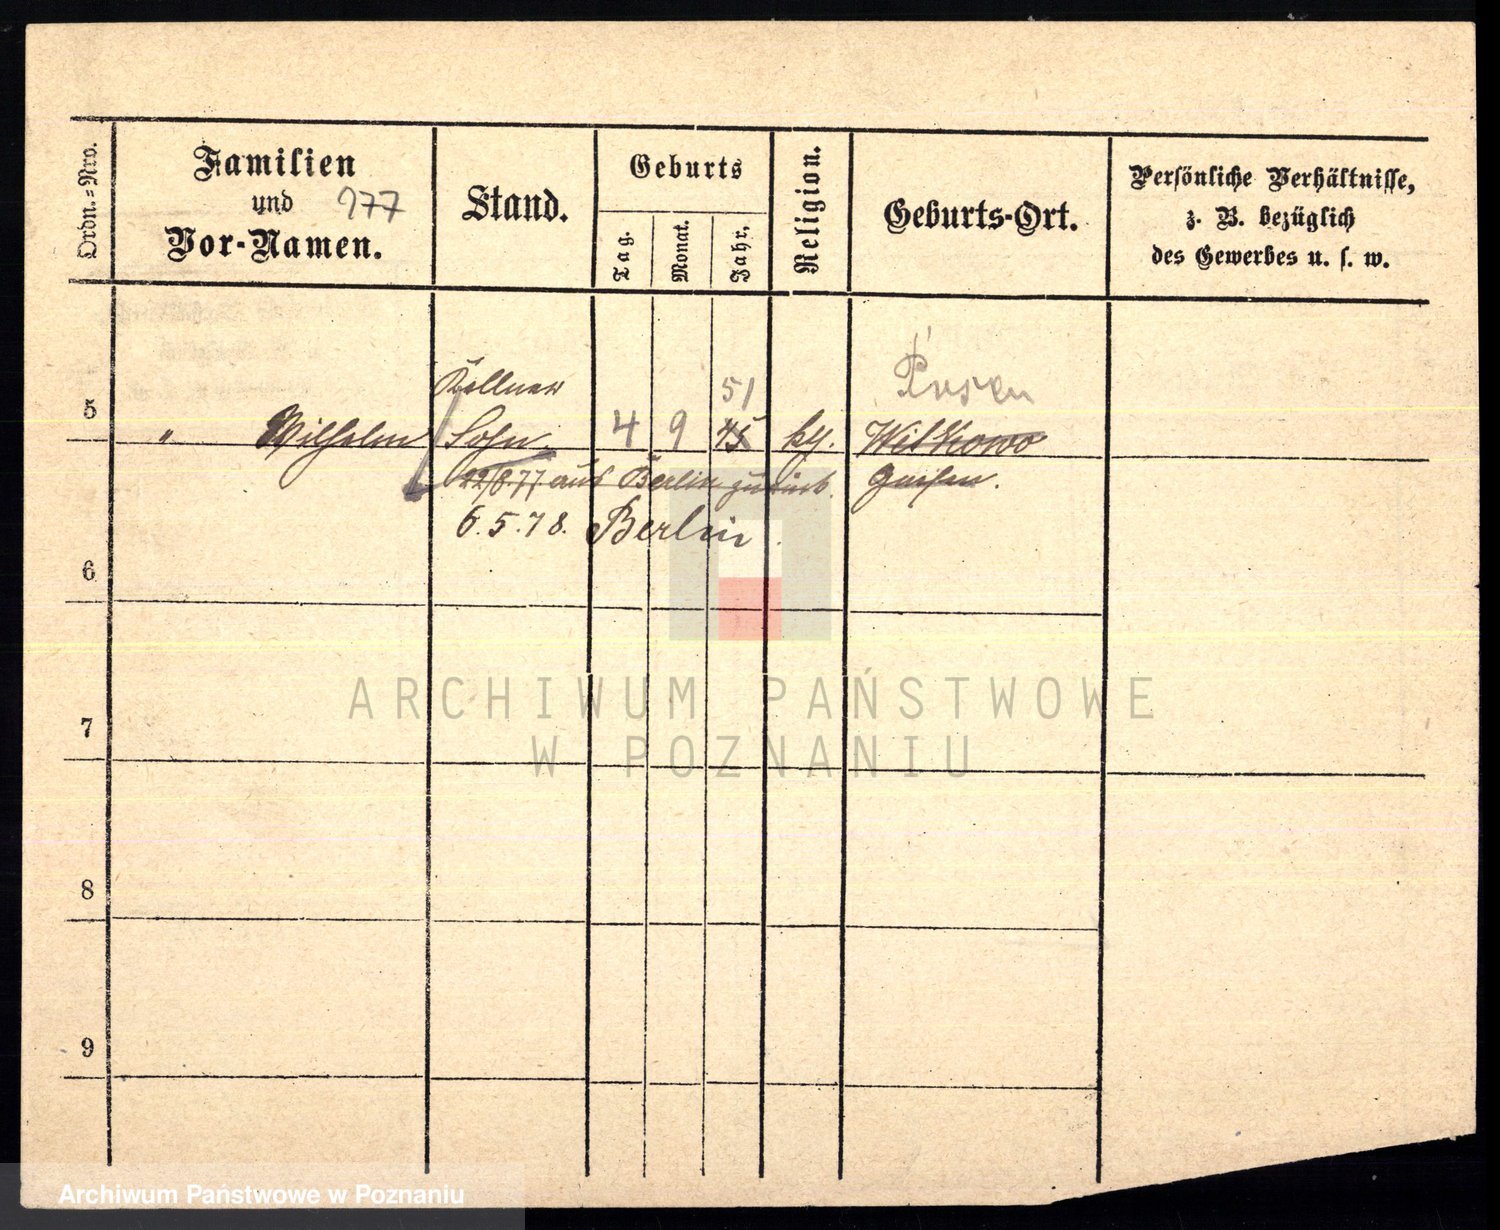 Ordn.=Nro.
Familien
und
Vor-Namen.
977
Stand.
Geburts
Tag.
Monat.
Jahr.
Religion.
Geburts-Ort.
Persönliche Verhältnisse,
z. B. bezüglich
des Gewerbes u. s. w.
Kellner
51
Posen
5
" Wilhelm Sohn 4 9 45 kth. Witkowo
22/8 77 aus Berlin zurück. Gnesen.
6.5.78. Berlin.
6
7
8
9
ARCHIWUM PAŃSTWOWE
W POZNANIU
Archiwum Państwowe w Poznaniu